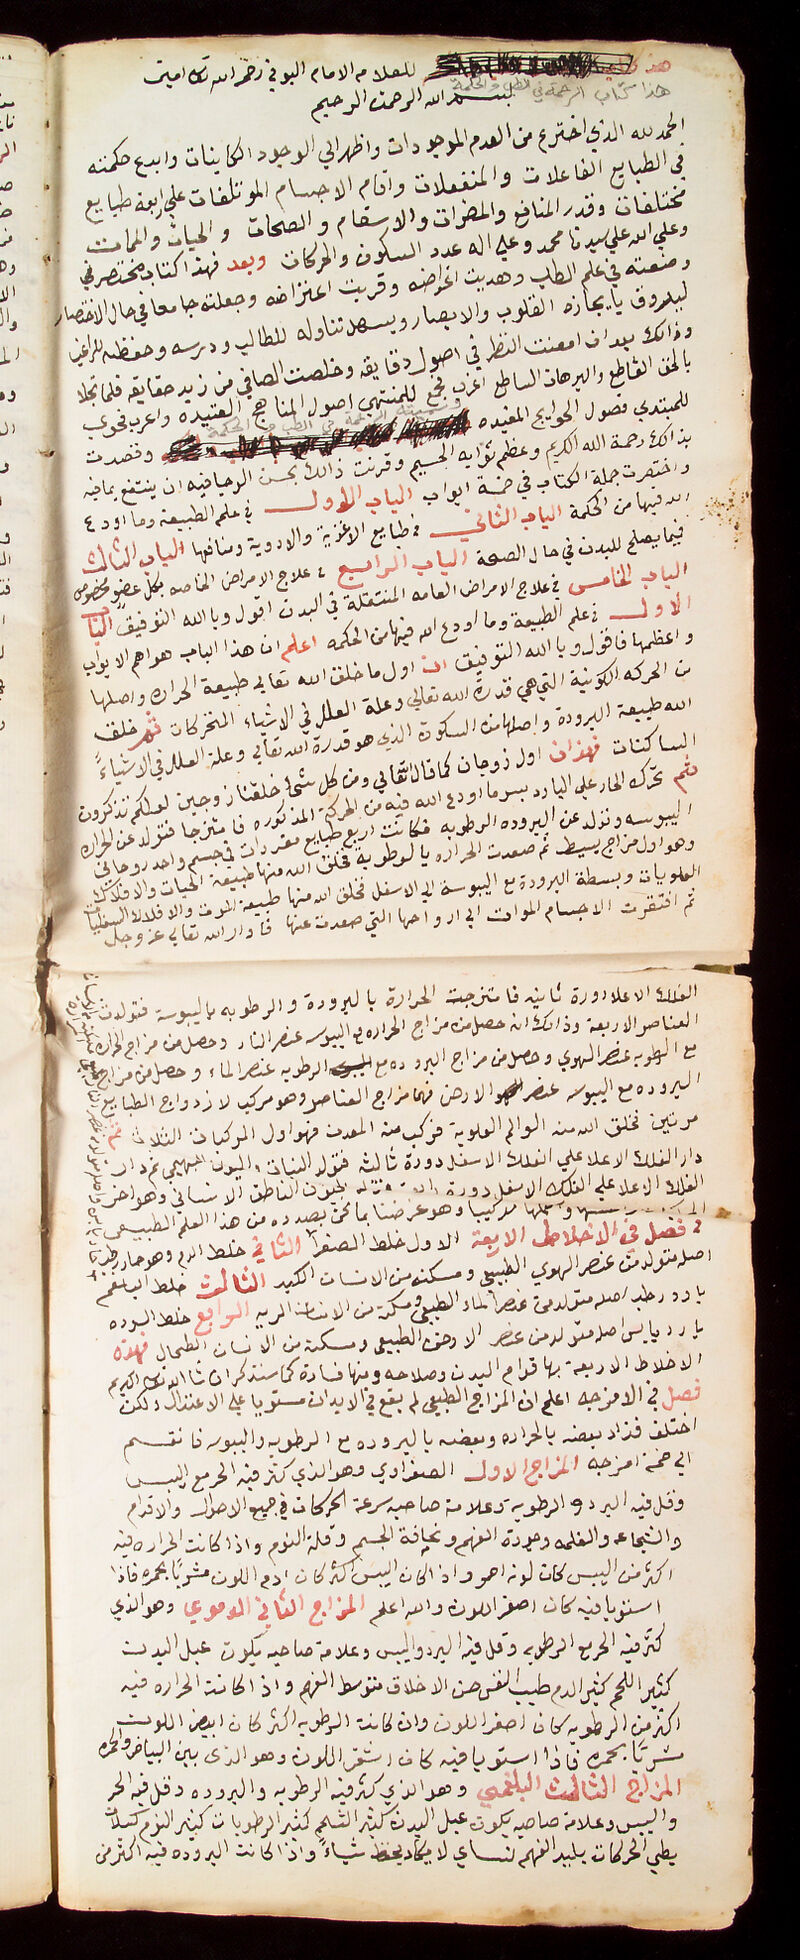 هذا للعلامه الامام البوني رحمه الله تعالى امين
هذا كتاب الرحمة في الطب والحكمة
بسم الله الرحمن الرحيم
الحمد لله الذي اخترع من العدم الموجودات واظهر الى الوجود الكاينات وابدع حكمته
في الطبايع الفاعلات والمنفعلات واقام الاجسام الموتلفات على اربعة طبايع
مختلفات وقدر المنافع والمضرات والاسقام والصحات والحيات والممات
وصلى الله على سيدنا محمد وعلى اله عدد السكون والحركات وبعد فهذا كتاب مختصر في
وضعته في علم الطب وهديت اغراضه وقربت اعتراضه وجعلته جامعا في حال الاختصار
ليروق بايجازه القلوب والابصار ويسهل تناوله للطالب ودرسه وحفظه للراغب
وذالك بعد ان امعنت النظر في اصول دقايقه وخلصت الصافي من زبد حقايقه فلما تجلا
بالحق القاطع والبرهان الساطع للمنتهي اصول المناهج العتيده واعرب فحوى
للمبتدي فصول الحوايج المفيده وسميته الرحمة في الطب والحكمة وقصدت
بذالك رحمة الله الكريم وعظم ثوابه الجسيم وقرنت ذالك بحسن الرجا فيه ان ينتفع بما فيه
واختصرت جملة الكتاب في خمسة ابواب الباب الاول في علم الطبيعة وما اودع
الله فيها من الحكمة الباب الثاني في طبايع الاغذية والادوية ومنافعها الباب الثالث
فيما يصلح للبدن في حال الصحة الباب الرابع في علاج الامراض الخاصه بكل عضو مخصوص
الباب الخامس في علاج الامراض العامه المنتقلة في البدن اقول وبا الله التوفيق الباب
الاول في علم الطبيعة وما اودع الله فيها من الحكمه اعلم ان هذا الباب هو اهم الابواب
واعظمها فاقول وبا الله التوفيق ان اول ما خلق الله تعالى طبيعة الحراره واصلها
من الحركه الكونية التي هي قدرة الله تعالى وعلة العلل في الاشياء المتحركات ثم خلق
الله طبيعة البرودة واصلها من السكون الذي هو قدرة الله تعالى وعلة العلل في الاشياء
الساكنات فهذان اول زوجان كما قال تعالى ومن كل شيء خلقنا زوجين لعلكم تذكرون
ثم تحرك الحار على البارد بسر ما اودع الله فيه من الحركة المذكوره فامتزجا فتولد عن الحراره
اليبوسه وتولد عن البروده الرطوبه فكانت اربع طبايع مفردات في جسم واحد روحاني
وهو اول مزاج بسيط ثم صعدت الحراره بالرطوبة فخلق الله منها طبيعة الحيات والافلاك
العلويات وبسطة البرودة مع اليبوسة الى الاسفل فخلق الله منها طبيعة الموت والافلاك السفليات
ثم افتقرت الاجسام الموات الى ارواحها التي صعدت عنها فادار الله تعالى عز وجل
الفلك الاعلا دورة ثانيه فامتزجت الحرارة بالبرودة والرطوبه باليبوسة فتولدت
العناصر الاربعة وذالك انه حصل من مزاج الحراره مع اليبوسه عنصر النار وحصل من مزاج الحراره
مع الرطوبه عنصر الهوى وحصل من مزاج البروده مع الرطوبه عنصر الماء وحصل من مزاج
البروده مع اليبوسه عنصر الارض فهذا مزاج العناصر وهو مركب لازدواج الطبايع
مرتين فخلق الله منه العوالم العلوية فركب منه المعدن فهو اول المركبات الثلاث ثم
دار الفلك الاعلا على الفلك الاسفل دورة ثالثه فتولد النبات والحيوان البهيمي ثم دار
الفلك الاعلا على الفلك الاسفل دورة فتولد الحيوان الناطق الانساني وهو اخر
تركيبا وهو غرضنا بما نحن بصدده من هذا العلم الطبيعي
فصل في الاخلاط الاربعة الاول خلط الصفرا الثاني خلط الدم وهو حار رطب
اصله متولد من عنصر الهوى الطبيعي ومسكنه من الانسان الكبد الثالث خلط البلغم
بارد رطب اصله متولد من عنصر الماء الطبيعي ومسكنه من الانسان الريه الرابع خلط السوده
بارد يابس اصله متولد من عنصر الارض الطبيعي ومسكنه من الانسان الطحال فهذه
الاخلاط الاربعة بها قوام البدن وصلاحه ومنها فساده كما سنذكر ان شا الله تعالى الكريم
فصل في الامزجه اعلم ان المزاج الطبيعي لم يقع في الابدان مستويا على الاعتدال ولكن
اختلف فزاد بعضه بالحراره وبعضه بالبروده مع الرطوبه واليبوسه فانقسم
الى خمسة امزجه المزاج الاول الصفراوي وهو الذي كثر فيه الحر مع اليبس
وقل فيه البرد والرطوبة وعلامة صاحبه سرعة الحركات في جميع الاحوال والاقدام
والشجاعه والغلمه وجودة الفهم ونحافة الجسم وقلة النوم واذا كانت الحراره فيه
اكثر من اليبس كان لونه احمر واذا كان اليبس اكثر كان ادم اللون مشوبا بحمره فاذا
استويا فيه كان اصفر اللون والله اعلم المزاج الثاني الدموي وهو الذي
كثر فيه الحر مع الرطوبه وقل فيه البرد واليبس وعلامة صاحبه يكون عبل البدن
كثير اللحم كثير الدم طيب النفس حسن الاخلاق متوسط الفهم واذا كانت الحراره فيه
اكثر من الرطوبه كان اصفر اللون وان كانت الرطوبه اكثر كان ابيض اللون
مشربا بحمره فاذا استويا فيه كان اشقر اللون وهو الذي بين البياض والحمره
المزاج الثالث البلغمي وهو الذي كثر فيه الرطوبه والبروده وقل فيه الحر
واليبس وعلامة صاحبه يكون عبل البدن كثير الشحم كثير الرطوبات كثير النوم كسلان
بطي الحركات بليد الفهم نساي لا يكاد يحفظ شياء واذا كانت البروده فيه اكثر من